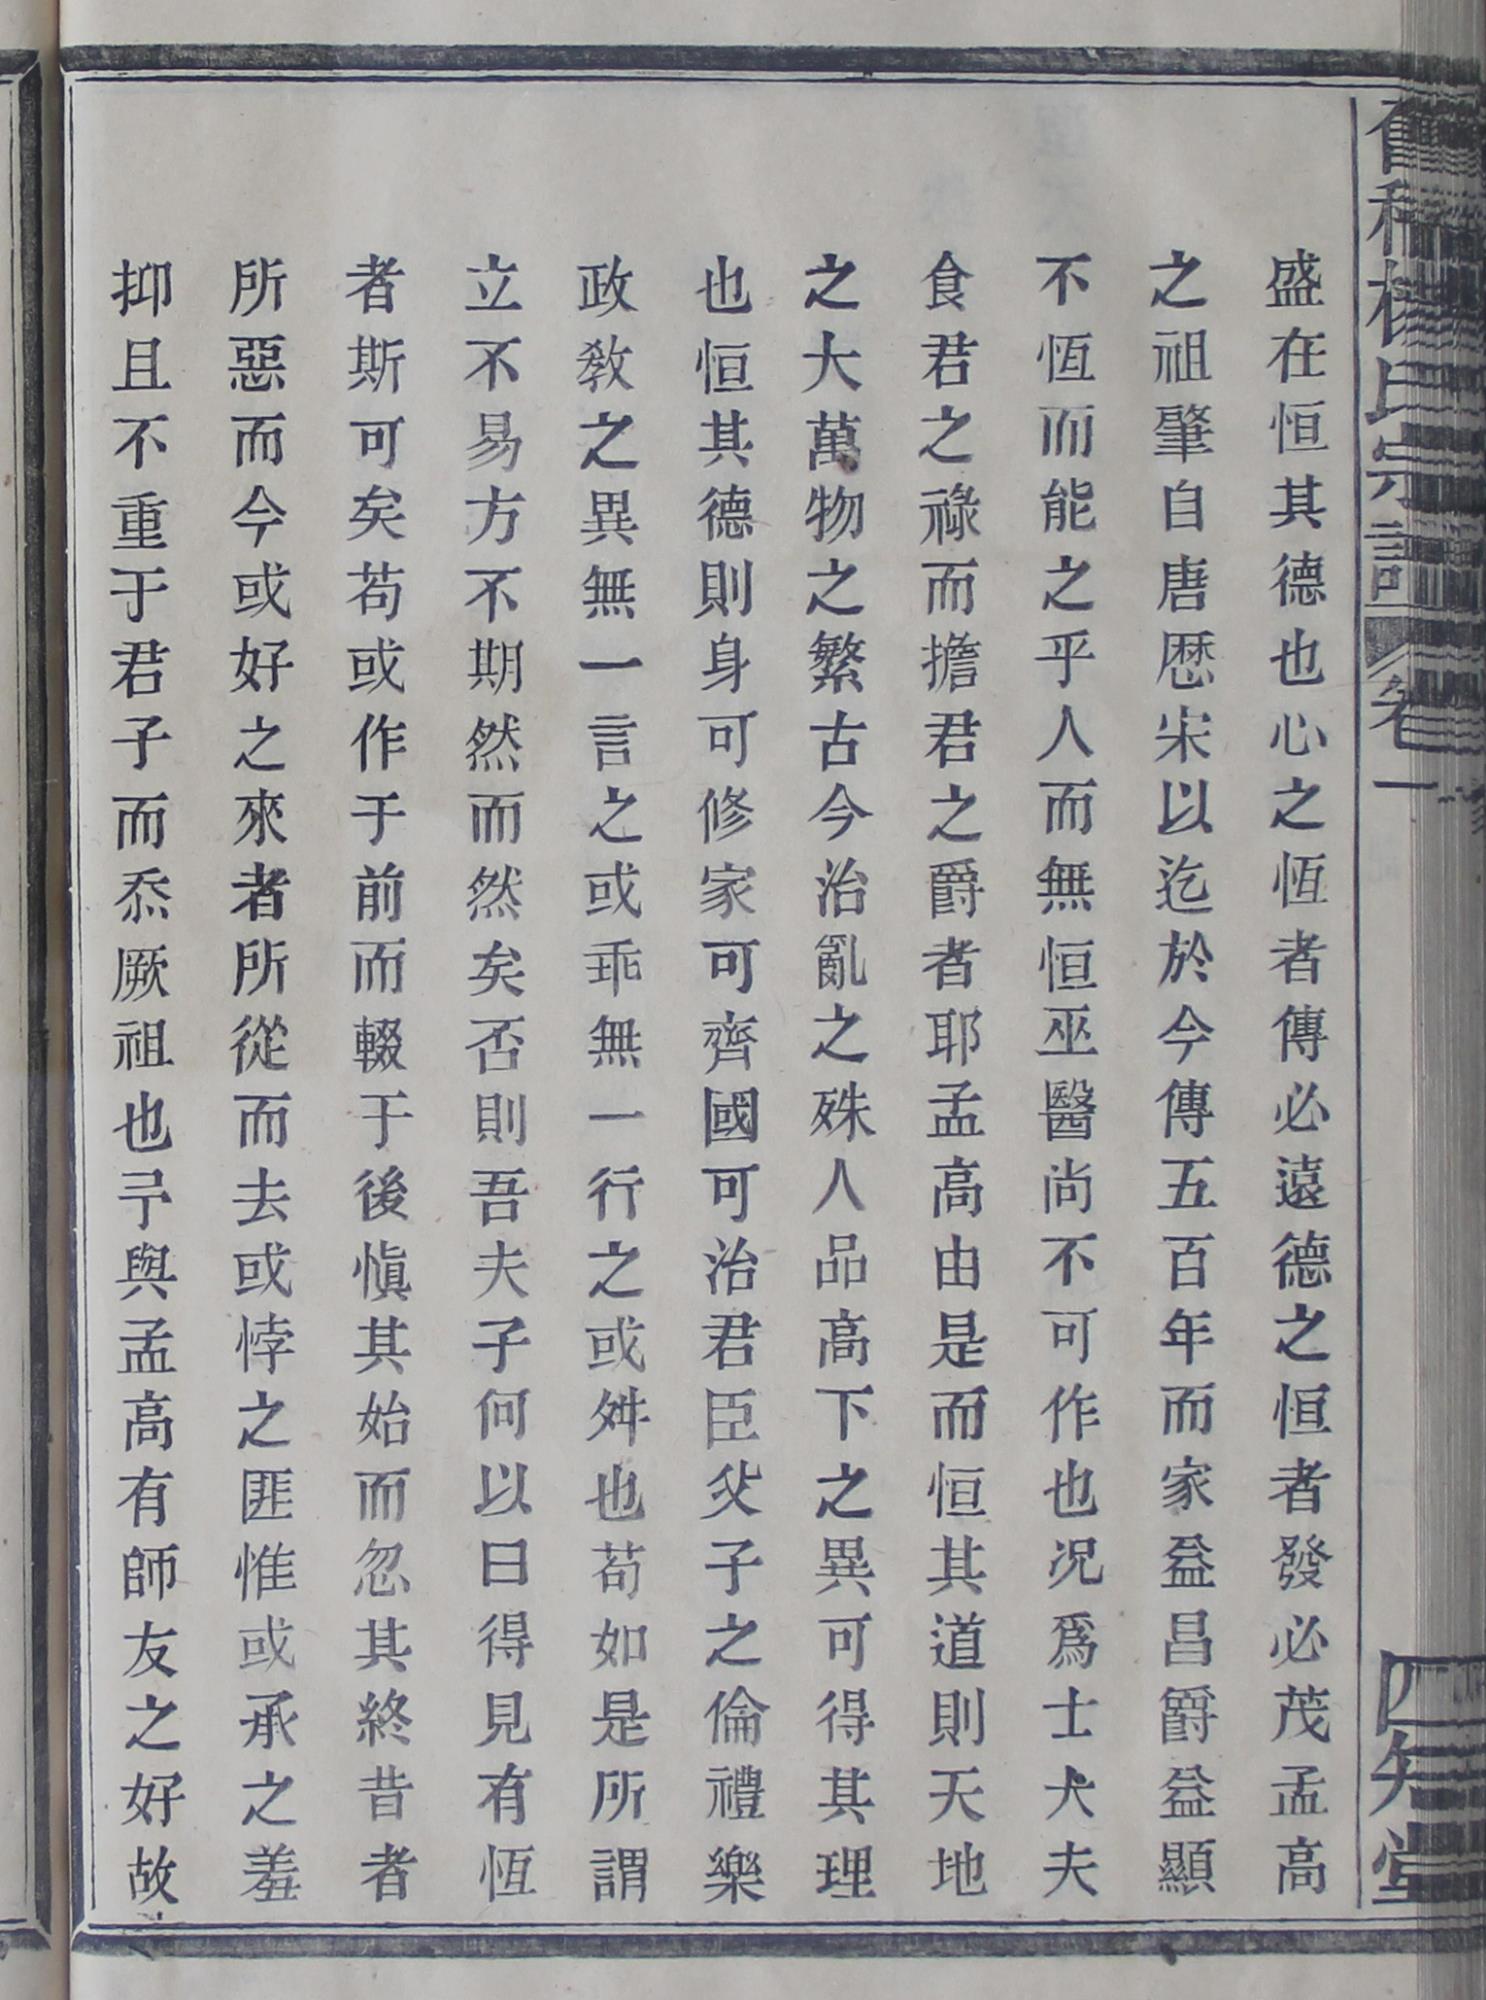 盛在恒其德也心之恆者傳必遠德之恒者發必茂孟高
之祖肇自唐歷宋以迄於今傳五百年而家益昌爵益顯
不恆而能之乎人而無恒巫醫尚不可作也况爲士大夫
食君之祿而擔君之爵者耶孟高由是而恒其道則天地
之大萬物之繁古今治亂之殊人品高下之異可得其理
也恒其德則身可修家可齊國可治君臣父子之倫禮樂
政教之異無一言之或乖無一行之或舛也苟如是所謂
立不易方不期然而然矣否則吾夫子何以曰得見有恆
者斯可矣苟或作于前而輟于後慎其始而忽其終昔者
所惡而今或好之來者所從而去或悖之匪惟或承之羞
抑且不重于君子而忝厥祖也予與孟高有師友之好故
氏宗譜 卷一
四知堂